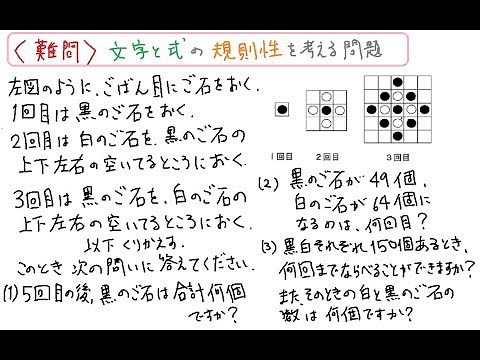 〈難問〉文字と式の規則性を考える問題
左図のように、ごばん目にご石をおく.
1回目は黒のご石をおく.
2回目は白のご石を、黒のご石の
上下左右の空いてるところにおく.
3回目は黒のご石を、白のご石の
上下左右の空いてるところにおく.
以下くりかえす.
このとき次の問いに答えてください.
(1)5回目の後、黒のご石は合計何個
ですか?
1回目
2回目
3回目
(2) 黒のご石が49個、
白のご石が64個に
なるのは、何回目?
(3)黒白それぞれ150個あるとき、
何回までならべることができますか?
また、そのときの白と黒のご石の
数は何個ですか?